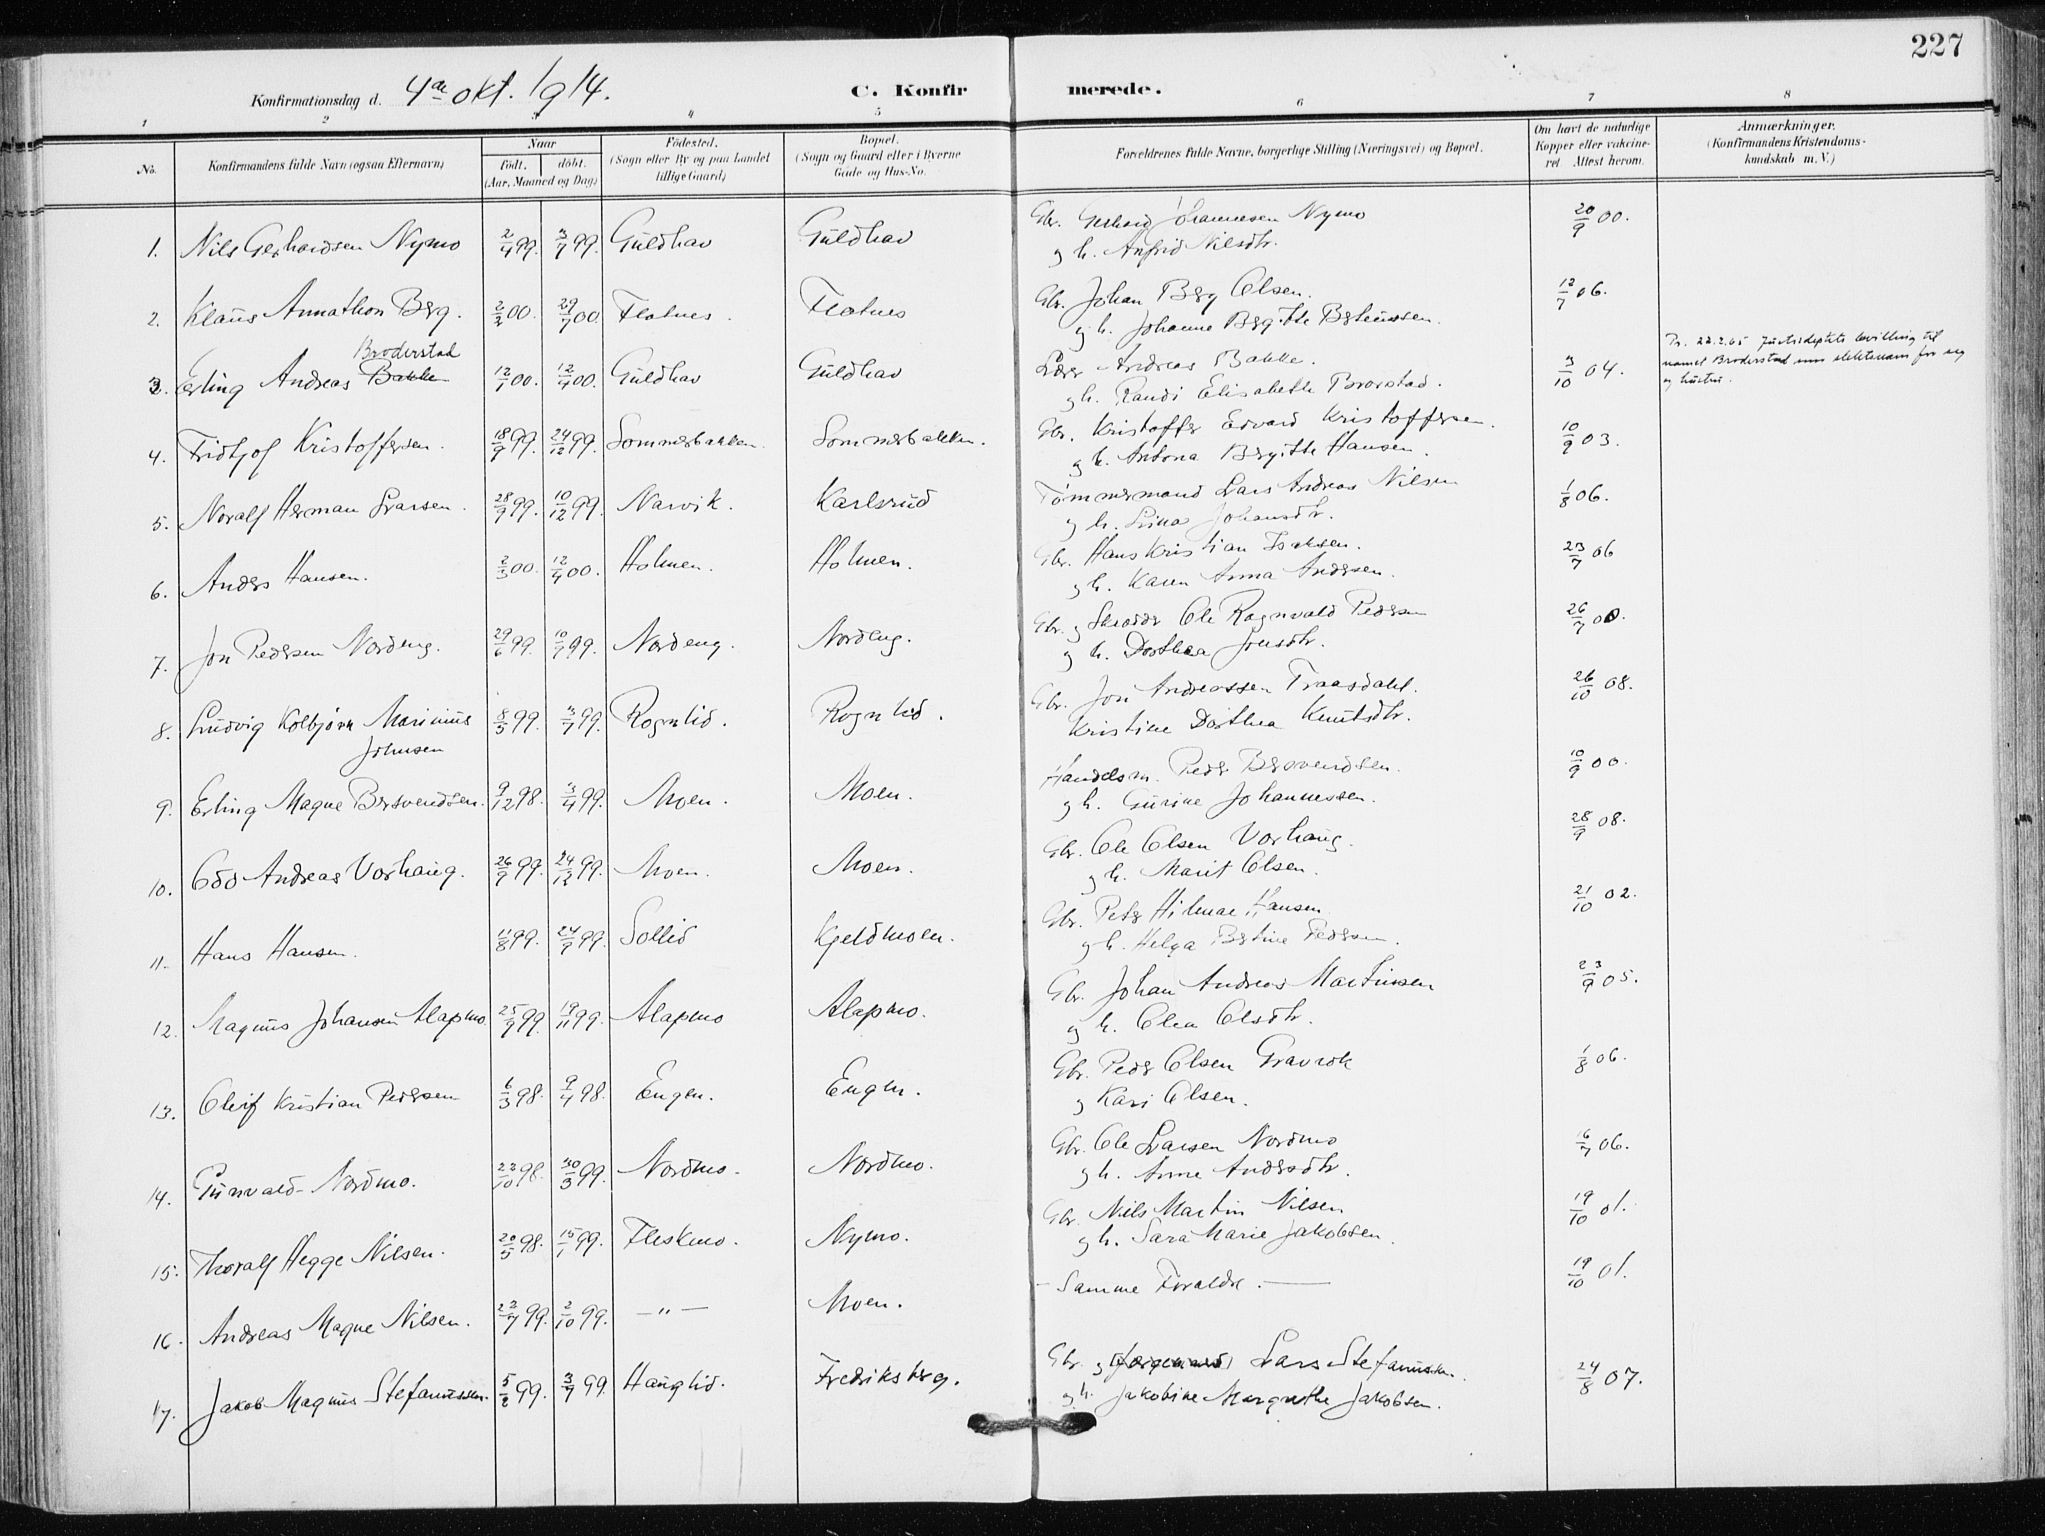 227
Konfirmationsdag d. 4de okt. 1914. C. Konfirmerede.
1 2 3 4 5 6 7 8
No. Konfirmandens fulde Navn (ogsaa Efternavn) Naar født. døbt. (Aar, Maaned og Dag) Fødested. (Sogn eller By og paa Landet tillige Gaard) Bopæl. (Sogn og Gaard eller i Byerne Gade og Hus-No. Forældrenes fulde Navne, borgerlige Stilling (Næringsvei) og Bopæl. Om havt de naturlige Kopper eller vakcineret. Attest herom. Anmærkninger. (Konfirmandens Kristendomskundskab m. V.)
1. Nils Gerhardsen Nymo 2/4 99. 3/7 99. Guldhav Guldhav Gbr. Gerhard Johannesen Nymo 20/9 00.
og h. Anfrid Nilsdtr.
2. Klaus Annathon Berg. 2/2 00. 29/7 00. Flatnes. Flatnes Gbr. Johan Berg Olsen. 12/7 06.
og h. Johanne Bergitte Berteussen.
Broderstad
3. Erling Andreas Bakke 12/1 00. 12/4 00. Guldhav Guldhav Lærer Andreas Bakke. 3/10 04.
og h. Randi Elisabeth Brorstad.
22.2.65 bevilling til
navnet Broderstad som slektsnavn for seg
og hustru.
4. Fridtjof Kristoffersen. 18/9 99. 24/12 99. Sommerbakken. Sommerbakken. Gbr. Kristoffer Edvard Kristoffersen. 10/9 03.
og h. Antona Bergitte Hansen.
5. Noralf Herman Larsen. 28/9 99. 10/12 99. Narvik. Karlsrud Tømmermand Lars Andreas Nilsen 1/8 06.
og h. Lina Johansdtr.
6. Anders Hansen. 2/3 00. 12/4 00. Holmen. Holmen. Gbr. Hans Kristian Isaksen. 23/7 06
og h. Karen Anna Andersen.
7. Jon Pedersen Nordeng. 29/6 99. 10/9 99. Nordeng. Nordeng. Gbr. og Skræder Ole Ragnvald Pedersen 26/7 00.
og h. Dorthea Jonsdtr.
8. Ludvig Kolbjørn Marinius 8/5 99. 3/7 99. Rognlid. Rognlid. Gbr. Jon Andreassen Traasdahl. 26/10 08.
Johnsen Kristine Dorthea Knutsdtr.
9. Erling Magne Bersvendsen. 9/12 98. 3/4 99. Moen. Moen. Handelsm. Peder Bersvendsen. 10/9 00.
og h. Gurine Johannessen.
10. Odd Andreas Vorhaug. 26/9 99. 24/12 99. Moen. Moen. Gbr. Ole Olsen Vorhaug. 28/9 08.
og h. Marit Olsen.
11. Hans Hansen. 11/8 99. 24/9 99. Sollid Kjeldmoen. Gbr. Peter Hilmar Hansen 21/10 02.
og h. Helga Bertine Pedersen.
12. Magnus Johansen Alapmo 25/9 99. 19/11 99. Alapmo Alapmo. Gbr. Johan Andreas Martinsen 23/9 05.
og h. Olea Olsdtr.
13. Oleif Kristian Pedersen 6/3 98. 9/4 98. Engen. Engen. Gbr. Peder Olsen Gravrok 1/8 06.
og Kari Olsen.
14. Gunvald Nordmo. 22/10 98. 30/3 99. Nordmo. Nordmo. Gbr. Ole Larsen Nordmo 16/7 06.
og h. Anne Andersdtr.
15. Thoralf Hegge Nilsen. 20/5 98. 15/1 99. Fleskmo. Nymo. Gbr. Nils Martin Nilsen 19/10 01.
og h. Sara Marie Jakobsen.
16. Andreas Magne Nilsen. 22/7 99. 2/10 99. — " — Moen. – Samme Forældre. — 19/10 01.
17. Jakob Magnus Stefanussen. 5/2 99. 3/9 99. Hauglid. Fredriksberg. Gbr. og Lars Stefanussen. 24/8 07.
og h. Jakobine Margrethe Jakobsen.